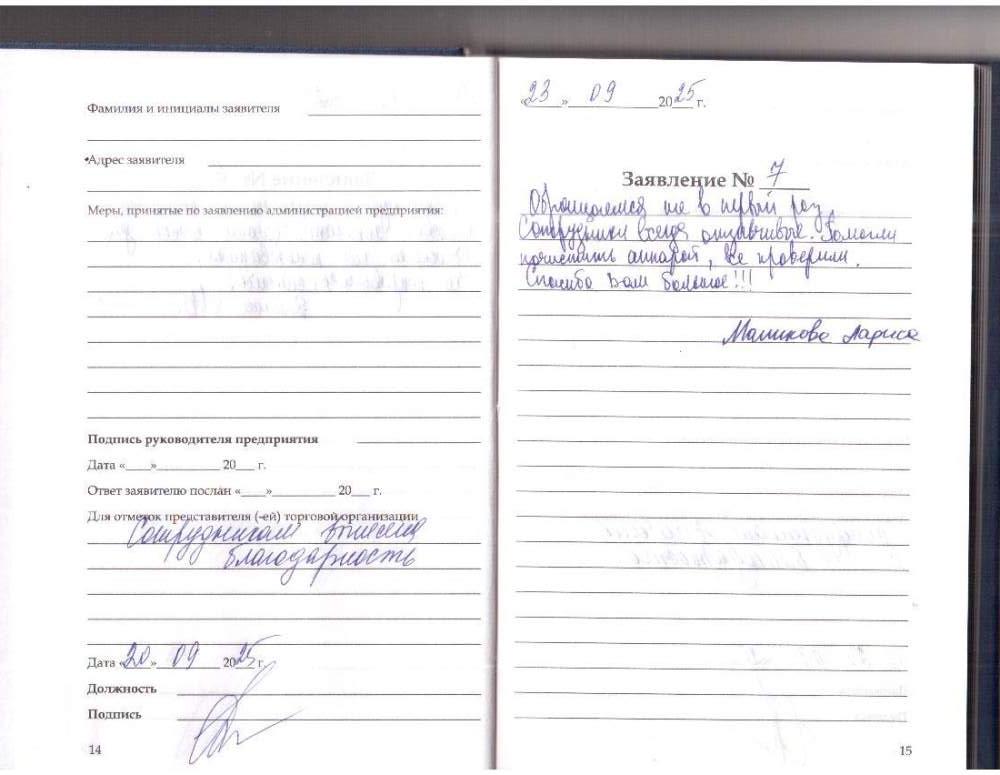 Фамилия и инициалы заявителя
Адрес заявителя
Меры, принятые по заявлению администрацией предприятия:
Подпись руководителя предприятия
Дата «____»__________ 20___ г.
Ответ заявителю послан «____»__________ 20___ г.
Для отметок представителя (-ей) торговой организации
Сотрудникам вынесена
благодарность
Дата «20» 09 2025 г.
Должность
Подпись
14
«23» 09 2025 г.
Заявление № 7
Обращаемся не в первый раз.
Сотрудники всегда отзывчивые. Помогли
почистить аппарат, все проверили.
Спасибо Вам большое!!!
Маликова Лариса
15